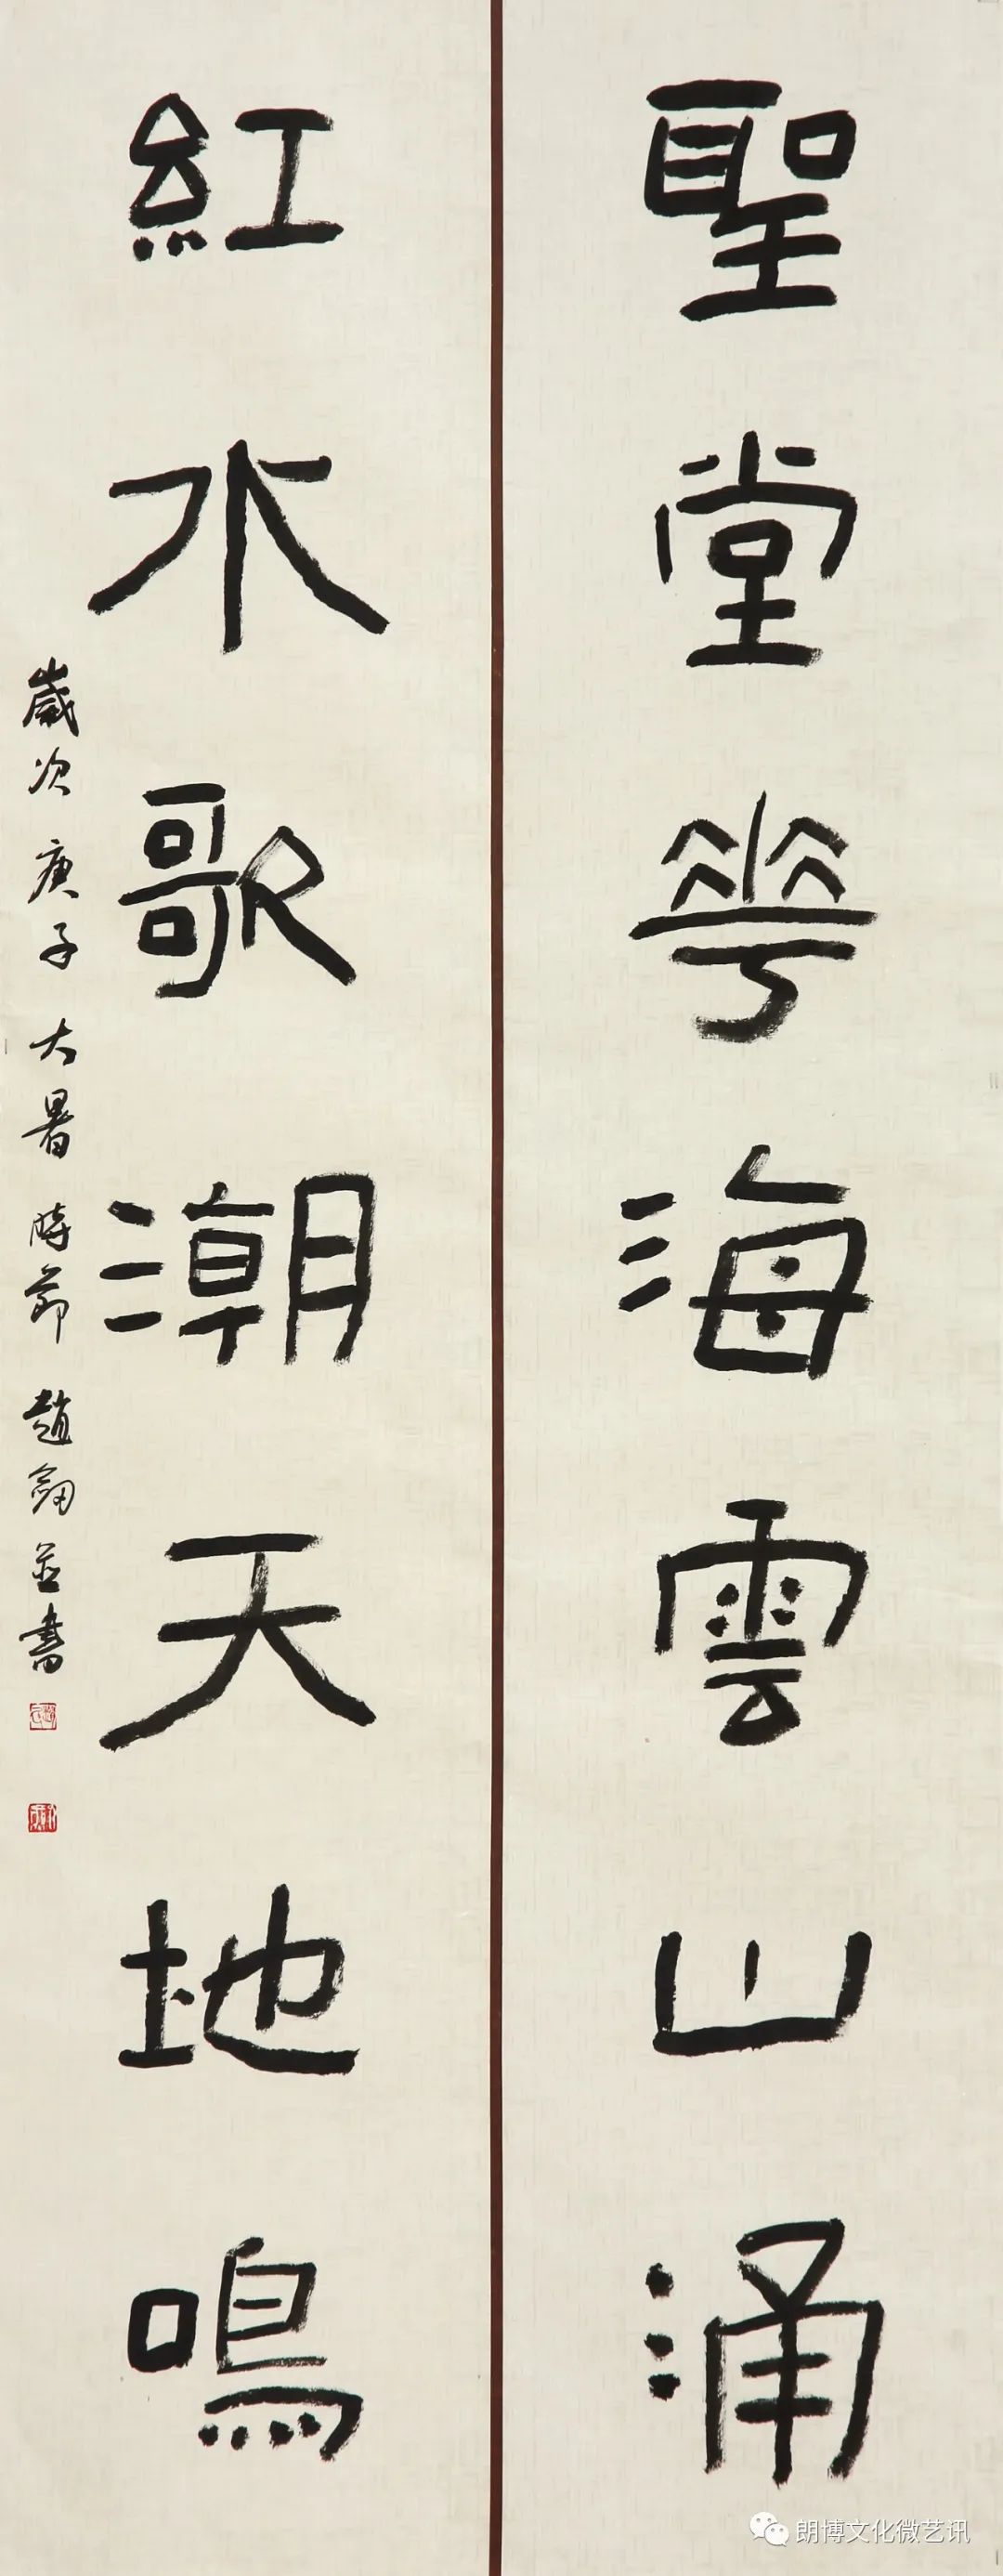 聖堂花海雲山涌
紅水歌潮天地鳴
歲次庚子大暑時節趙劍並書
朗博文化微艺讯